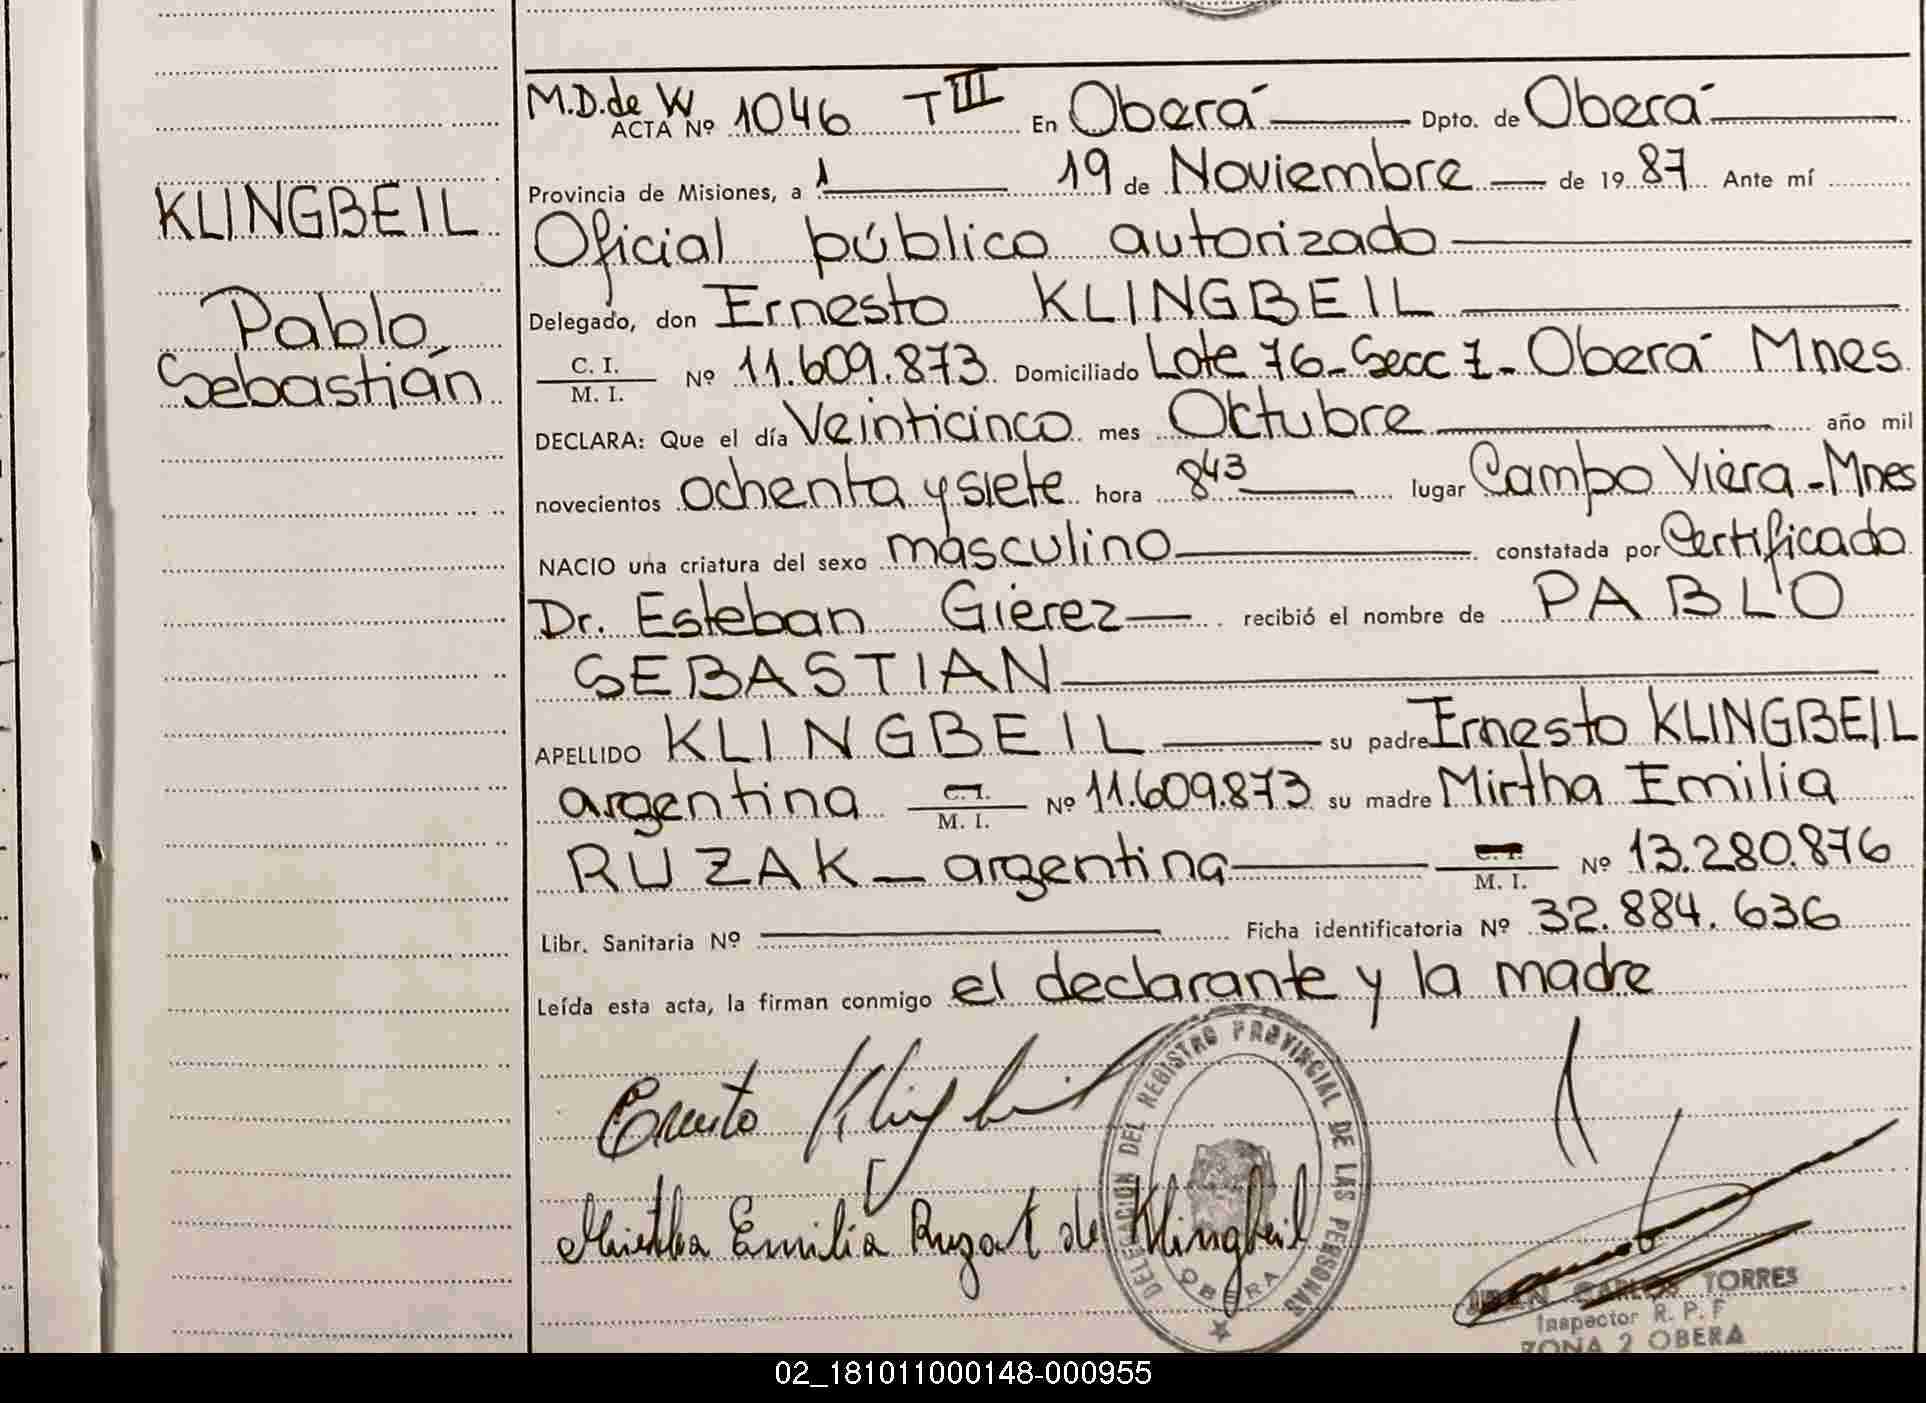 KLINGBEIL
Pablo
Sebastián
M.D.de W
ACTA Nº 1046 T III En Oberá Dpto. de Oberá
Provincia de Misiones, a 19 de Noviembre de 1987 Ante mí
Oficial público autorizado
Delegado, don Ernesto KLINGBEIL
C. I.
M. I.
Nº 11.609.873 Domiciliado Lote 76_Secc 7_ Oberá Mnes
DECLARA: Que el día Veinticinco mes Octubre año mil
novecientos ochenta y siete hora 8 43 lugar Campo Viera_Mnes
NACIO una criatura del sexo masculino constatada por Certificado
Dr. Esteban Gierez recibió el nombre de PABLO
SEBASTIAN
APELLIDO KLINGBEIL su padre Ernesto KLINGBEIL
argentina C. I. M. I. Nº 11.609.873 su madre Mirtha Emilia
RUZAK_ argentina C. I. M. I. Nº 13.280.876
Libr. Sanitaria Nº Ficha identificatoria Nº 32.884.636
Leída esta acta, la firman conmigo el declarante y la madre
Ernesto
Mirtha Emilia Ruzak de Klingbeil
DELEGACION DEL REGISTRO PROVINCIAL DE LAS PERSONAS
OBERA
JUAN CARLOS TORRES
Inspector R. P. F
ZONA 2 OBERA
02_181011000148-000955